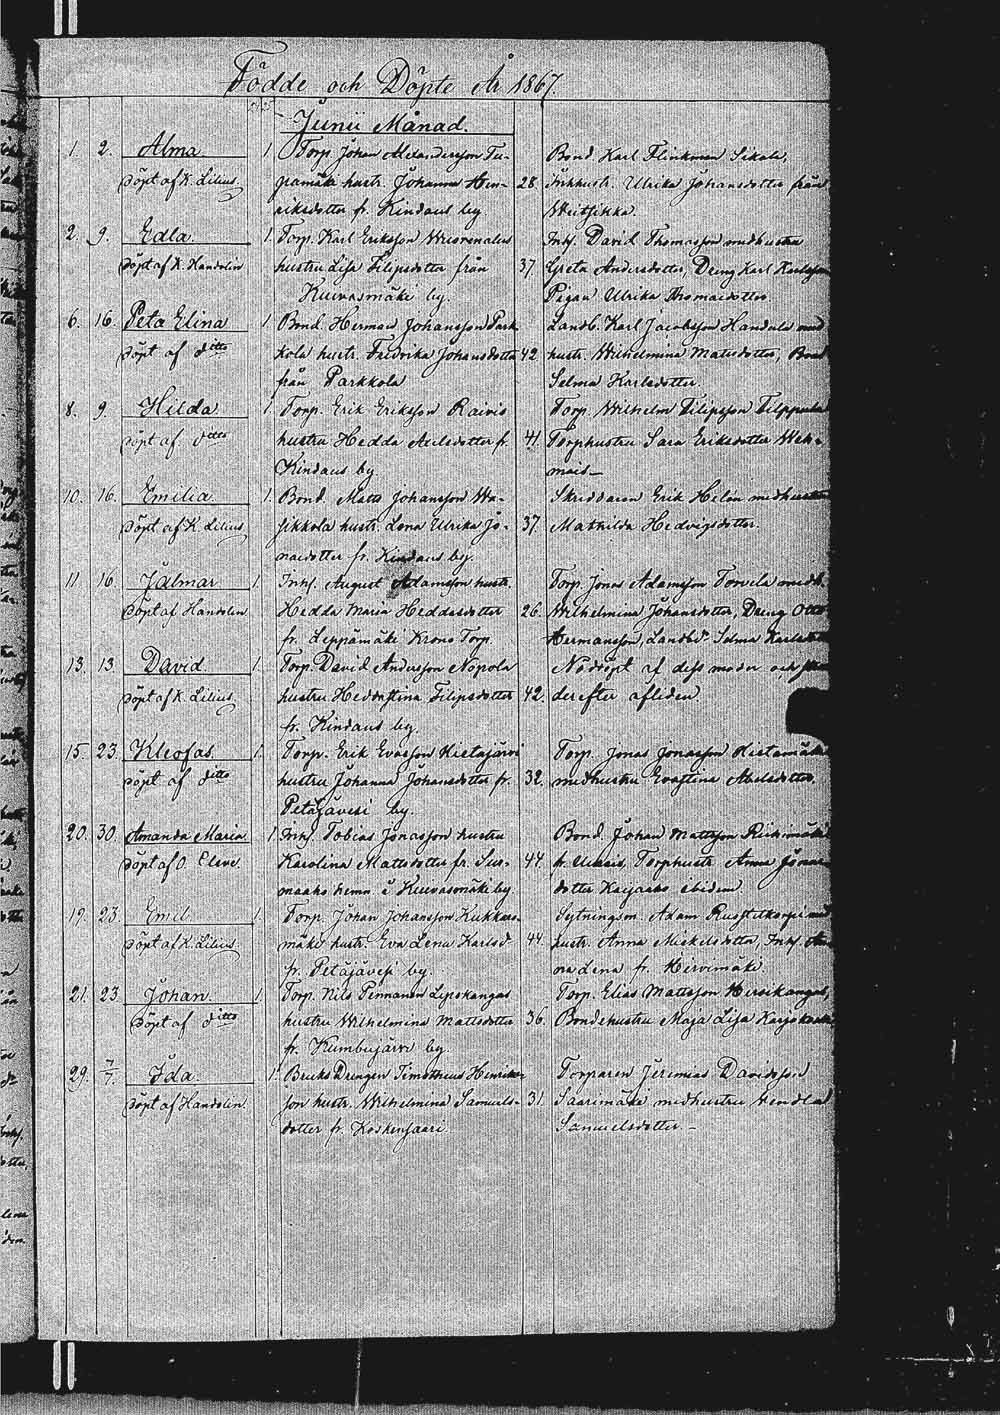 Födde och Döpte År 1867.
Junii Månad.
1. 2. Alma. 1. Torp. Johan Alexandersson Tu- Bond Karl Flinkman Sikala,
döpt af K. Lilius. pamäki hustr. Johanna Hen- 28. Ulrika Johansdotter från
riksdotter fr. Kindaus by
2. 9. Edla. 1. Torp. Karl Eriksson Inhs. David Thomasson med hustru
döpt af K. Handolin hustru Lisa Filipsdotter från 37. Greta Andersdotter, Dreng Karl Karlsson
Kuivasmäki by. Pigan Ulrika Thomasdotter
6. 16. Peta Elina 1. Bond. Herman Johansson Park- Landb. Karl Jacobsson Handula med
döpt af ditto kola hustr. Fredrika Johansdotter 42. hustr. Wilhelmina Mattsdotter,
från Parkkola Selma Karlsdotter.
8. 9. Hilda. 1. Torp. Erik Eriksson Raivio Torp. Wilhelm Filipsson Filppula
döpt af ditto hustru Hedda Axelsdotter fr. 41. Torphustru Sara Eriksdotter Weh-
Kindaus by mais
10. 16. Emilia. 1. Bond. Matts Johansson Wa- Skreddaren Erik Helen med hustru
döpt af K. Lilius. sikkola hustr. Lena Ulrika Jo- 37. Mathilda Hedvigsdotter.
nasdotter fr. Kindaus by.
11. 16. Jalmar 1. Inhs. August Adamsson hustr. Torp. Jonas Adamsson Torvela med h.
döpt af Handolin. Hedda Maria Heddasdotter 26. Wilhelmina Johansdotter, Dreng Otto
fr. Leppämäki Krono Torp. Hermansson, Selma
13. 13. David. 1. Torp. David Andersson Nopola Nöddöpt af dess moder och
döpt af K. Lilius. hustru Hedvastina Filipsdotter 42. derefter afliden.
fr. Kindaus by.
15. 23. Kleofas. 1. Torp. Erik Evasson Hietajärvi Torp. Jonas Jonasson
döpt af ditto hustru Johanna Johansdotter fr. 32. med hustru Evastina Axelsdotter.
Petäjävesi by.
20. 30. Amanda Maria 1. Inhs. Tobias Jonasson hustru Bond. Johan Mattsson Riihimäki
döpt af O. Cleve. Karolina Mattsdotter fr. Sus- 44. Torphustr. Anna
maaho hemn. å Kuivasmäki by. dotter ibidem
19. 23. Emil 1. Torp. Johan Johansson Kukkaro- Sytningsm. Adam
döpt af K. Lilius. mäki hustr. Eva Lena Karlsd. 44. hustr. Anna Mickelsdotter, Inhs.
fr. Petäjävesi by. Lena fr. Hirvimäki
21. 23. Johan. 1. Torp. Nils Pennanen Lepokangas Torp. Elias Mattsson Hirvikangas,
döpt af ditto hustru Wilhelmina Mattsdotter 36. Bondehustru Maja Lisa
fr. Kumbujärvi by.
29. 7/7. Ida. 1. Bruks Drengen Timotheus Henriks- Torparen Jeremias Davidsson
döpt af Handolin. son hustr. Wilhelmina Samuels- 31. Saarimäki med hustru Hendla
dotter fr. Koskensaari. Samuelsdotter.